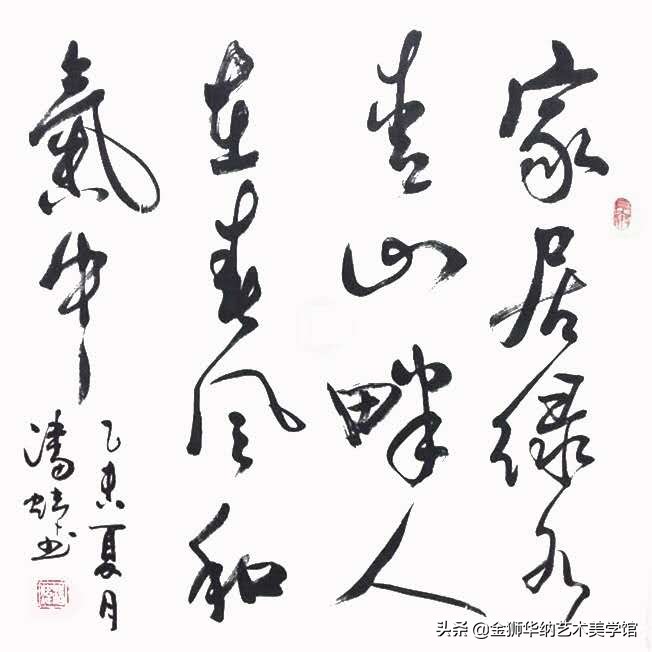 家居绿水
青山畔人
在春风和
氣中
乙未夏月
潘
头条 @金狮华纳艺术美学馆